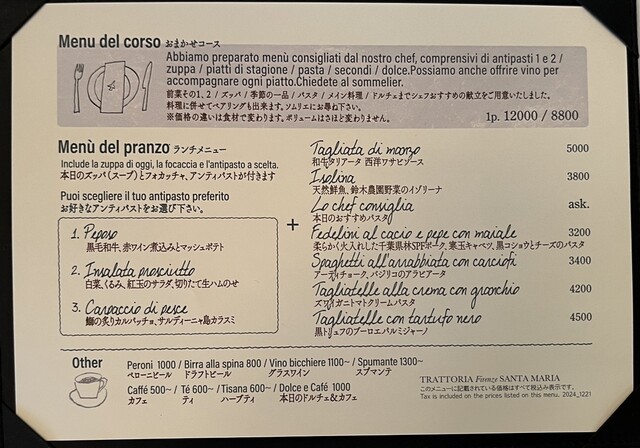 Menu del corso おまかせコース
Abbiamo preparato menù consigliati dal nostro chef, comprensivi di antipasti 1 e 2 /
zuppa / piatti di stagione / pasta / secondi / dolce.Possiamo anche offrire vino per
accompagnare ogni piatto.Chiedete al sommelier.
前菜その1、2 / ズッパ / 季節の一品 / パスタ / メイン料理 / ドルチェまでシェフおすすめの献立をご用意いたしました。
料理に併せてペアリングも出来ます。ソムリエにお尋ね下さい。
※価格の違いは食材で変わります。ボリュームはさほど変わりません。
1p. 12000 / 8800
Menù del pranzo ランチメニュー
Include la zuppa di oggi, la focaccia e l'antipasto a scelta.
本日のズッパ(スープ)とフォカッチャ、アンティパストが付きます
Puoi scegliere il tuo antipasto preferito
お好きなアンティパストをお選び下さい。
1. Peposo
黒毛和牛、赤ワイン煮込みとマッシュポテト
2. Insalata prosciutto
白菜、くるみ、紅玉のサラダ、切りたて生ハムのせ
3. Carpaccio di pesce
鰤の炙りカルパッチョ、サルディーニャ島カラスミ
+
Tagliata di manzo 5000
和牛タリアータ 西洋ワサビソース
Isolina 3800
天然鮮魚、鈴木農園野菜のイソリーナ
Lo chef consiglia ask.
本日のおすすめパスタ
Fedelini al cacio e pepe con maiale 3200
柔らかく火入れした千葉県林SPFポーク、寒玉キャベツ、黒コショウとチーズのパスタ
Spaghetti all'arrabbiata con carciofi 3400
アーティチョーク、バジリコのアラビアータ
Tagliatelle alla crema con granchio 4200
ズワイガニトマトクリームパスタ
Tagliatelle con tartufo nero 4500
黒トリュフのブーロエパルミジャーノ
Other
Peroni 1000 / Birra alla spina 800 / Vino bicchiere 1100~ / Spumante 1300~
ペローニビール ドラフトビール グラスワイン スプマンテ
Caffé 500~ / Té 600~ / Tisana 600~ / Dolce e Café 1000
カフェ ティ ハーブティ 本日のドルチェ&カフェ
TRATTORIA Firenze SANTA MARIA
このメニューに記載されている価格はすべて税込み表示です。
Tax is included on the prices listed on this menu. 2024_1221